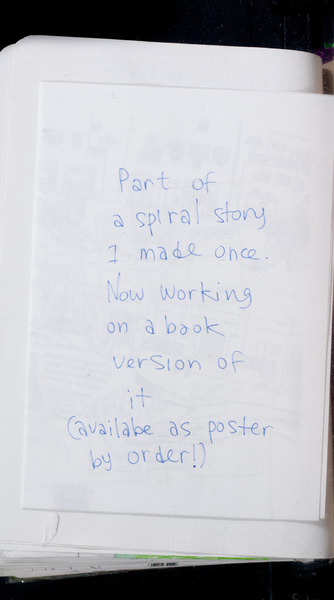 Part of
a spiral story
I made once.
Now working
on a book
version of
it
(availabe as poster
by order!)